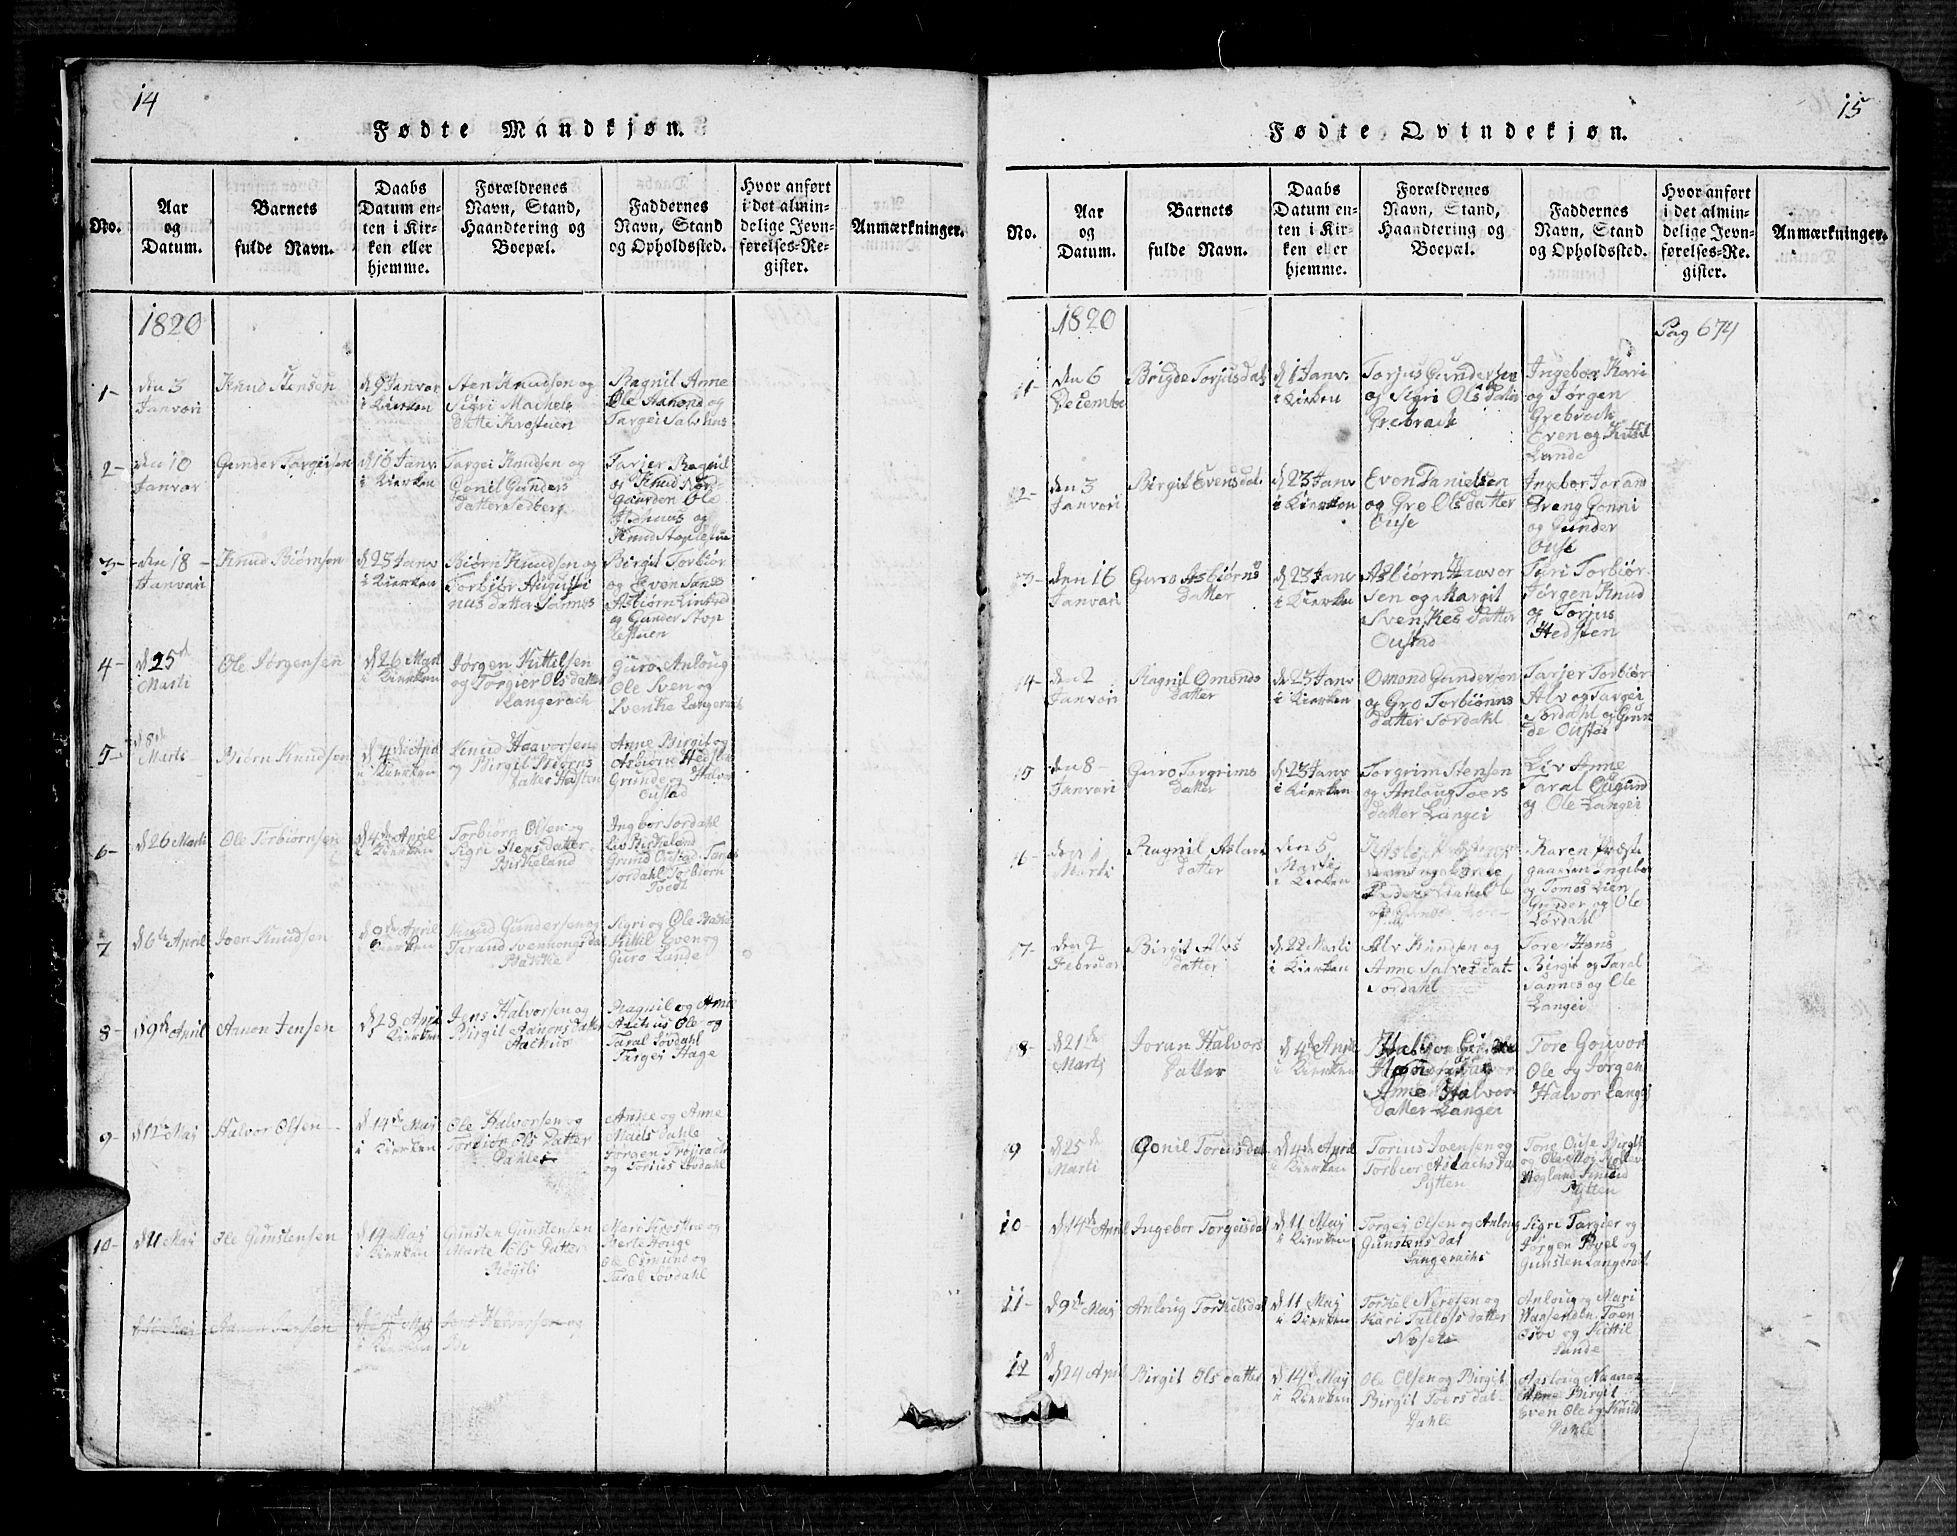 14
Fødte Mandkjøn.
No.
Aar
og
Datum.
Barnets
fulde Navn.
Daabs
Datum en-
ten i Kir-
ken eller
hjemme.
Forældrenes
Navn, Stand,
Haandtering og
Boepæl.
Faddernes
Navn, Stand
og Opholdssted.
Hvor anført
i det almin-
delige Jevn-
førelses-Re-
gister.
Anmærkninger.
1820
1-
den 3
Janvari
Knud Stensen
d 9 Janvar
i Kierken
Sten Knudsen og
Sigri Machels
datte Krosteien
Ragnil Anne
Ole Aamond og
Targei Salshus
2-
den 10
Janvar
Gunder Targeisen
d 16 Janv
i Kierken
Targei Knudsen og
Gonil Gunders
datter Sedberg
Tarjer Ragnil
og Knud Nor-
gaarden Ole
og
Knud
3-
den 18
Janvari
Knud Biørnsen
d 23 Janv
i Kierken
Biørn Knudsen og
Torbiør Augusti
nus datter Sannes
Birgit Torbiør
og Even Sanes
Asbiørn
og Gunder Stop
lesteien
4-
d 25
Marti
Ole Jørgensen
d 26 Mart
i Kierken
Jørgen Kittilsen
og Torgier Ols datter
Langerach
Guro Anloug
Ole Sven og
Svenke Langerach
5-
d 8de
Marti
Biørn Knudsen
d 4de April
i Kierken
Knud Haavorsen
og Birgit Biørns
datter Hasten
Anne Birgit og
Asbiørn Hedsten
Grunde og Halvor
Oustad
6-
d 26 Marti
Ole Torbiørnsen
d 4de April
i Kierken
Torbiørn Olsen og
Sigri Stensdatter
Birkeland
Ingbor Sordahl
Liv Birkeland
Grund Oustad Taral
Sordahl Torbiørn
Tvedt
7
d 6te April
Joen Knudsen
d 9de April
i Kierken
Knud Gundersen og
Tarand Svennongsdat
Bakke
Sigri og Ole Bakke
Kittil Even og
Guro Lande
8-
d 9de April
Amon Jensen
d 28 April
i Kierken
Jens Halvorsen og
Birgit Aamons datter
Aachus
Ragnil og Anne
Aachus Ole og
Taral Sordahl
Tergei Hage
9-
d 12te Maj
Halvor Olsen
d 14de Maj
i Kierken
Ole Halvorsen og
Torbior Ols Datter
Dahle
Anne og Anne
Maels Dahle
Jørgen
og Torius Sordahl
10-
d 11 Maj
Ole Gunstensen
d 14 Maj
i Kierken
Gunsten Gunstensen
Marte Ols Datter
Røysli
Mari
Berte Houge
Ole Osmund og
Taral Sordahl
Maj
i Kierken
Jens Halvorsen og
Bi
15
Fødte Qvindekjøn.
No.
Aar
og
Datum.
Barnets
fulde Navn.
Daabs
Datum en-
ten i Kir-
ken eller
hjemme.
Forældrenes
Navn, Stand,
Haandtering og
Boepæl.
Faddernes
Navn, Stand
og Opholdssted.
Hvor anført
i det almin-
delige Jevn-
førelses-Re-
gister.
Anmærkninger.
1820
Pag 674
1-
den 6
Decembe
Brigde Torjusdat
d 1 Janv.
i Kierken
Torjus Gundersen
og Sigri Olsdatter
Grebrack
Ingebor Kari
og Jørgen
Grebrack
Even og Kittil
Lande
2-
den 3
Janvari
Birgit Evensdat
d 23 Janv
i Kierken
Even Danielsen
og Gro Olsdatter
Ouse
Ingebor Joran
Dreng Gonni
og Gunder
Ouse
3-
den 16
Janvari
Guro Asbiørns
datter
d 23 Janv
i Kierken
Asbiørn Haavor
sen og Margit
Svenkes datter
Oustad
Sigri Torbiør
Jørgen Knud
og Torjus
Hedsten
4-
den 2
Janvari
Ragnil Omonds
datter
d 23 Janv
i Kierken
Omond Gundersen
og Gro Torbiørns
datter Sordahl
Tarjer Torbiør
Alv og Targei
Sordahl og Grun
de Oustad
5
den 8-
Janvari
Guro Torgrims
datter
d 23 Janv
i Kierken
Torgrim Stensen
og Anloug Toers
datter Langei
Liv Anne
Taral Ougund
og Ole Langei
6-
den 1
Marti
Ragnil Aslaxs
datter
den 5
Marti
i Kierken
Karen Præste
gaarden Ingebor
og Tomes Lien
Gunder og Ole
Sordahl
7-
den 2
Februar
Birgit Alvs
datter
d 22 Marti
i Kierken
Alv Knudsen og
Anne Salves dat-
Sordahl
Tore Hans
Birgit og Taral
Sannes og Ole
Langei
8-
d 21de
Martj
Joran Halvors
Datter
d 4de April
i Kierken
Halvor
Anne Halvor
datter Langei
Tore Gouvor
Ole og Jørgen
Halvor Langej
9
d 25de
Marti
Gonil Toriusdat
d 4de April
i Kierken
Torius Joensen og
Torbior Aslachs Dat
Pytten
Tore Ouse Birgit
og Ole Moj
Knud
Pytten
10-
d 14de April
Ingebor Torgeisdat
d 11 Maj
i Kierken
Torgej Olsen og Anloug
Gunstens dat
Langerachs
Sigri Targier og
Jørgen Povel og
Gunsten Langerack
11-
d 9de Maj
Anloug Torkelsdat
d 11 Maj
i Kierken
Torkel Nerisen og
Kari Tallofs datter
Noset
Anloug og Mari
Toen
og Kittil
Lande
12
d 24 April
Birgit Ols datter
d 14de Maj
i Kierken
Ole Olsen og Birgit
Birgit Toers dat
Dahle
Aasloug
Anne Birgit
Even Ole og Knud
Dahle